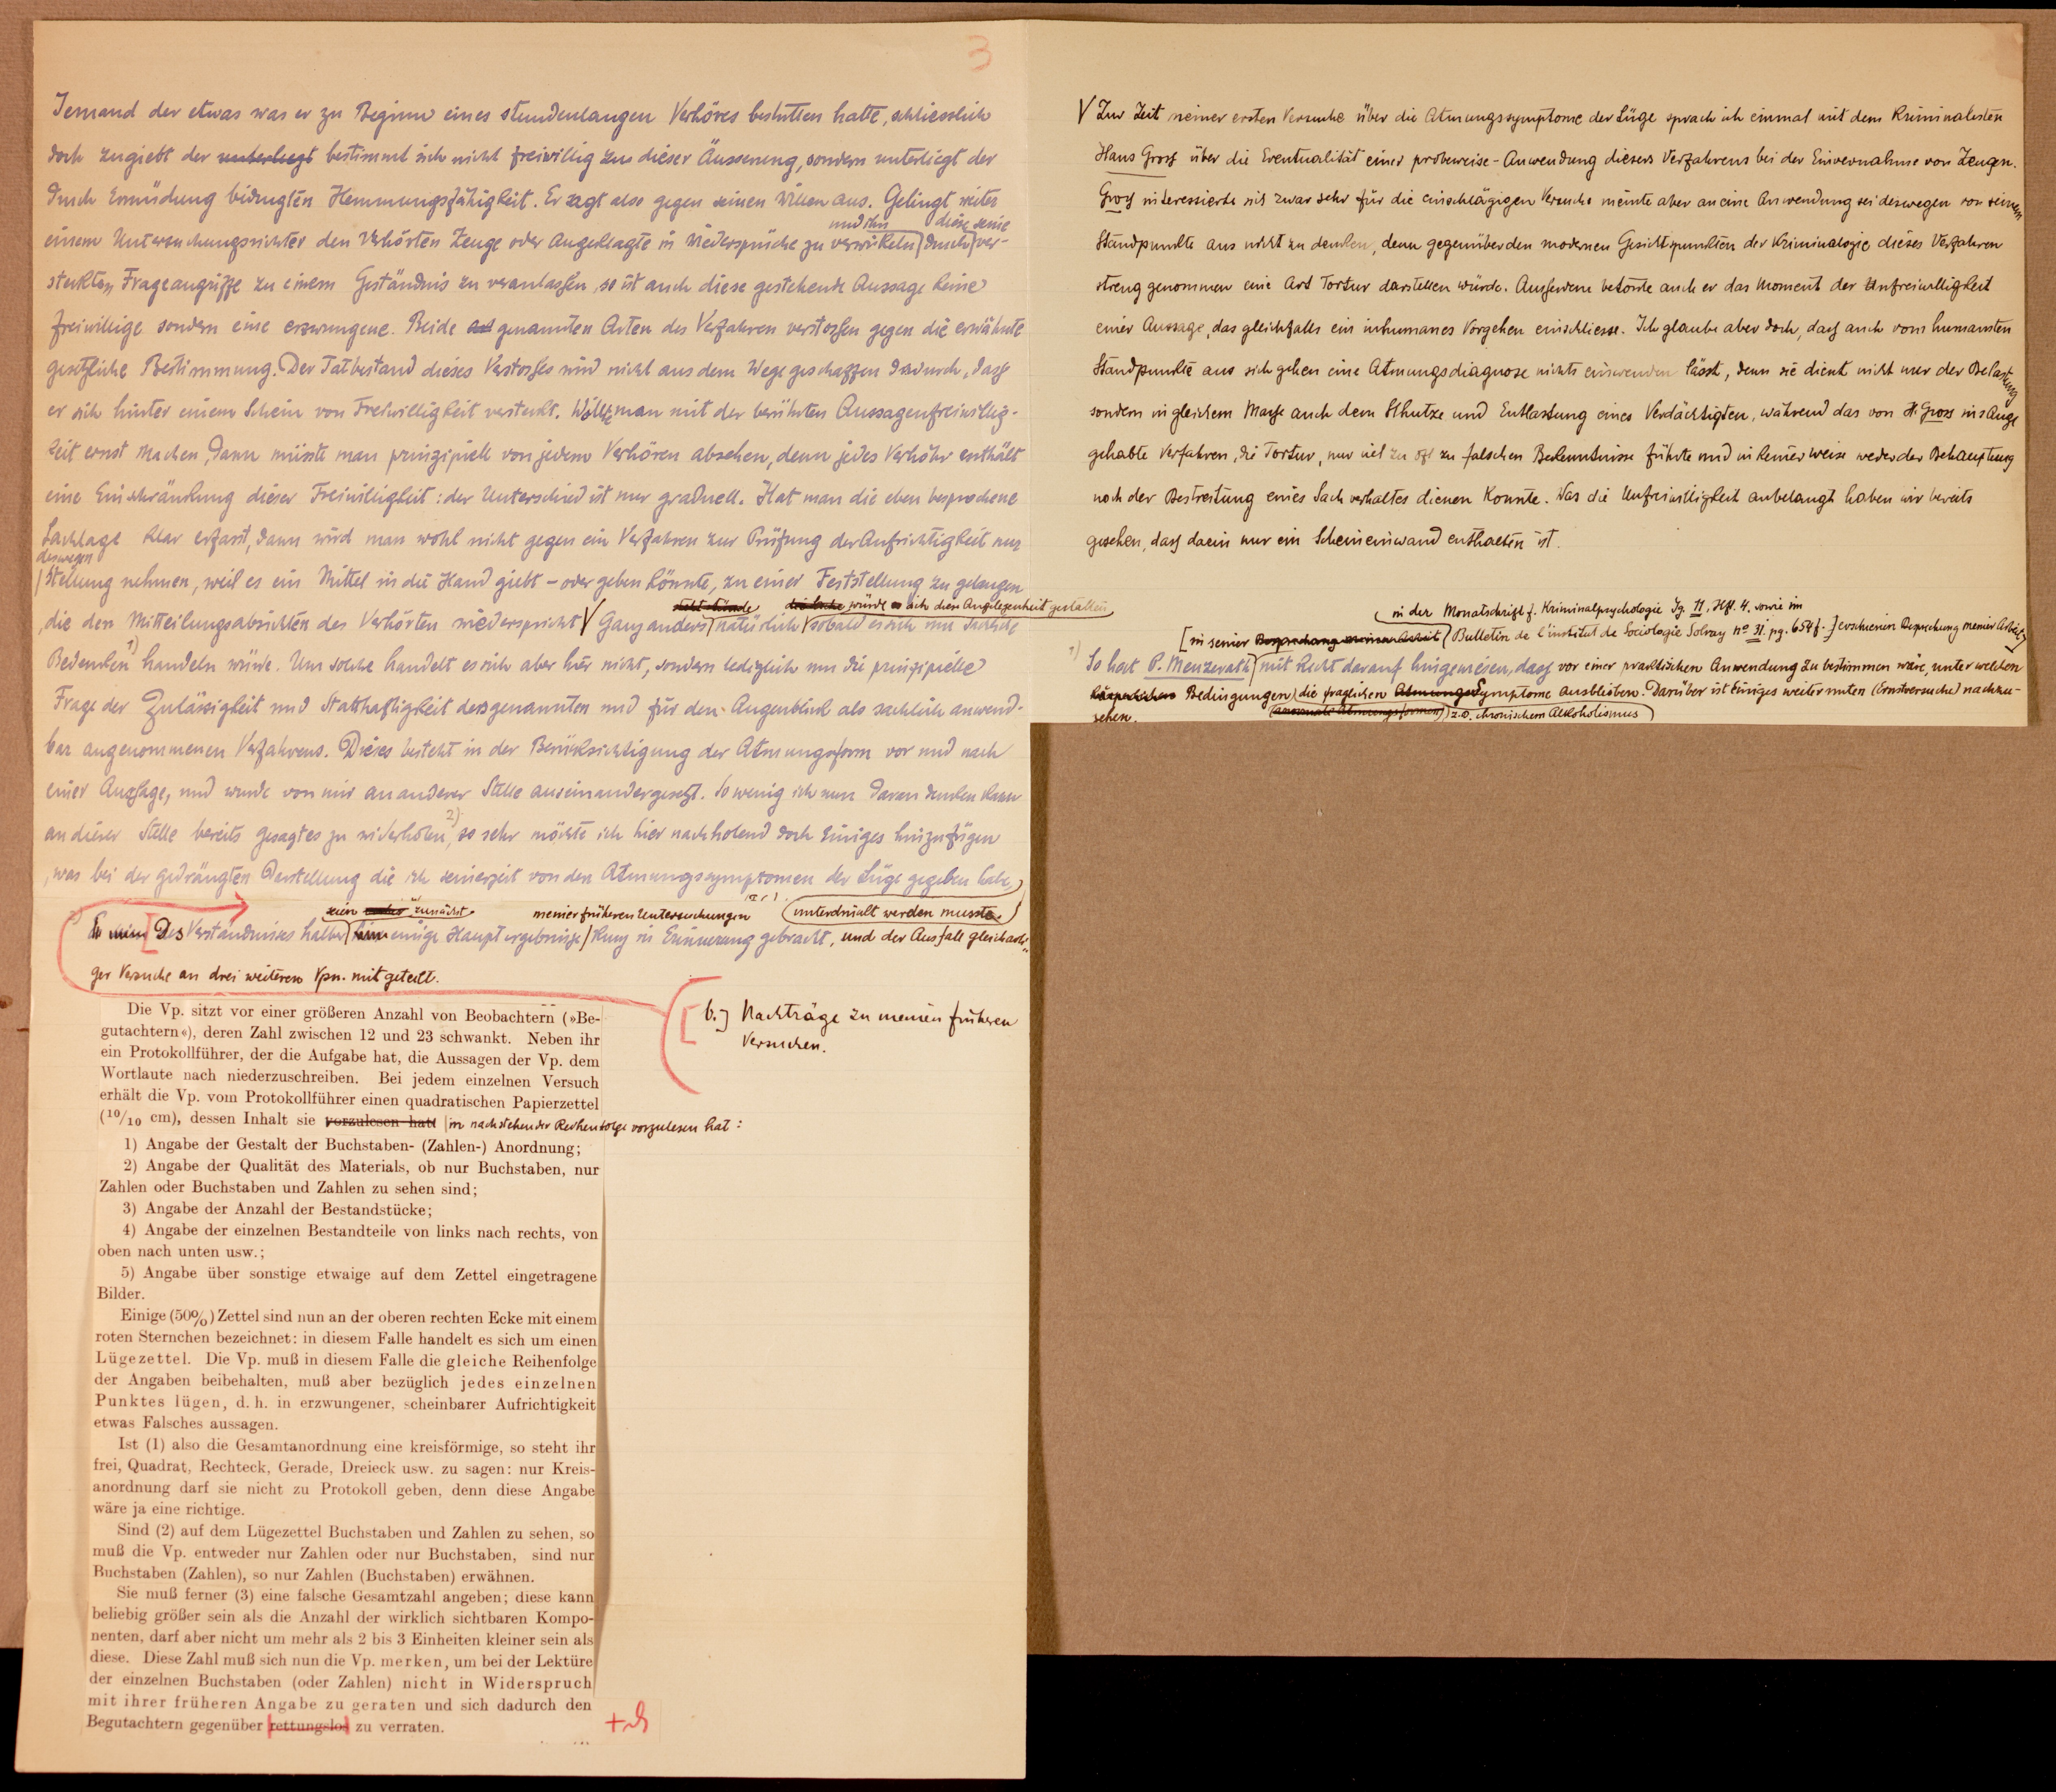 3
Jemand der etwas was er zu Beginn eines stundenlangen Verhöres bestritten hatte, schliesslich
doch zugiebt der unterliegt bestimmt sich nicht freiwillig zu dieser Äusserung, sondern unterliegt der
durch Ermüdung bedingten Hemmungsfähigkeit. Er sagt also gegen seinen Willen aus. Gelingt weiter
und ihn diese seine
einem Untersuchungsrichter den Verhörten Zeuge oder Angeklagte in Wiedersprüche zu verwickeln durch ver-
steckten Frageangriffe zu einem Geständnis zu veranlassen, so ist auch diese gestehende Aussage keine
freiwillige sondern eine erzwungene. Beide genannten Arten des Verfahren verstossen gegen die erwähnte
gesetzliche Bestimmung. Der Tatbestand dieses Verstosses wird nicht aus dem Wege geschaffen dadurch, dass
er sich hinter einem Schein von Freiwilligkeit versteckt. Wollte man mit der berühmten Aussagenfreiwillig-
keit ernst machen, dann müsste man prinzipiell von jedem Verhören absehen, denn jedes Verhöhr enthält
eine Einschränkung dieser Freiwilligkeit: der Unterschied ist nur graduell. Hat man die eben besprochene
Sachlage klar erfasst, dann wird man wohl nicht gegen ein Verfahren zur Prüfung der Aufrichtigkeit nur
deswegen
Stellung nehmen, weil es ein Mittel in die Hand giebt – oder geben könnte, zu einer Feststellung zu gelangen
würde es sich diese Angelegenheit gestalten
, die den Mitteilungsabsichten des Verhörten wiederspricht V Ganz anders natürlich sobald es sich um sachliche
Bedenken 1) handeln würde. Um solche handelt es sich aber hier nicht, sondern lediglich um die prinzipielle
Frage der Zulässigkeit und Statthaftigkeit des genannten und für den Augenblick als sachlich anwend-
bar angenommenen Verfahrens. Dieses besteht in der Berücksichtigung der Atmungsform vor und nach
einer Aussage, und wurde von mir an anderer Stelle auseinandergesetzt. So wenig ich nun daran denken kann
an dieser Stelle bereits gesagtes zu wiederholen 2), so sehr möchte ich hier nachholend doch Einiges hinzufügen
, was bei der gedrängten Darstellung die ich seinerzeit von den Atmungssymptomen der Lüge gegeben habe,
seien zunächst meiner früheren Untersuchungen unterdrückt werden musste.
Des Verständnisses halber einige Hauptergebnisse kurz in Erinnerung gebracht, und der Ausfall gleicharti-
ger Versuche an drei weiteren Vpn. mitgeteilt.
b.) Nachträge zu meinen früheren
Versuchen.
Die Vp. sitzt vor einer größeren Anzahl von Beobachtern (»Be-
gutachtern«), deren Zahl zwischen 12 und 23 schwankt. Neben ihr
ein Protokollführer, der die Aufgabe hat, die Aussagen der Vp. dem
Wortlaute nach niederzuschreiben. Bei jedem einzelnen Versuch
erhält die Vp. vom Protokollführer einen quadratischen Papierzettel
(10/10 cm), dessen Inhalt sie vorzulesen hat: in nachstehender Reihenfolge vorzulesen hat:
1) Angabe der Gestalt der Buchstaben- (Zahlen-) Anordnung;
2) Angabe der Qualität des Materials, ob nur Buchstaben, nur
Zahlen oder Buchstaben und Zahlen zu sehen sind;
3) Angabe der Anzahl der Bestandstücke;
4) Angabe der einzelnen Bestandteile von links nach rechts, von
oben nach unten usw.;
5) Angabe über sonstige etwaige auf dem Zettel eingetragene
Bilder.
Einige (50%) Zettel sind nun an der oberen rechten Ecke mit einem
roten Sternchen bezeichnet: in diesem Falle handelt es sich um einen
Lügezettel. Die Vp. muß in diesem Falle die gleiche Reihenfolge
der Angaben beibehalten, muß aber bezüglich jedes einzelnen
Punktes lügen, d. h. in erzwungener, scheinbarer Aufrichtigkeit
etwas Falsches aussagen.
Ist (1) also die Gesamtanordnung eine kreisförmige, so steht ihr
frei, Quadrat, Rechteck, Gerade, Dreieck usw. zu sagen: nur Kreis-
anordnung darf sie nicht zu Protokoll geben, denn diese Angabe
wäre ja eine richtige.
Sind (2) auf dem Lügezettel Buchstaben und Zahlen zu sehen, so
muß die Vp. entweder nur Zahlen oder nur Buchstaben, sind nur
Buchstaben (Zahlen), so nur Zahlen (Buchstaben) erwähnen.
Sie muß ferner (3) eine falsche Gesamtzahl angeben; diese kann
beliebig größer sein als die Anzahl der wirklich sichtbaren Kompo-
nenten, darf aber nicht um mehr als 2 bis 3 Einheiten kleiner sein als
diese. Diese Zahl muß sich nun die Vp. merken, um bei der Lektüre
der einzelnen Buchstaben (oder Zahlen) nicht in Widerspruch
mit ihrer früheren Angabe zu geraten und sich dadurch den
Begutachtern gegenüber rettungslos zu verraten.
V Zur Zeit meiner ersten Versuche über die Atmungssymptome der Lüge sprach ich einmal mit dem Kriminalisten
Hans Gross über die Eventualität einer probeweise-Anwendung dieses Verfahrens bei der Einvernahme von Zeugen.
Gross interessierte sich zwar sehr für die einschlägigen Versuche meinte aber an eine Anwendung sei deswegen von seinem
Standpunkte aus nicht zu denken, denn gegenüber den modernen Gesichtspunkten der Kriminalogie dieses Verfahren
streng genommen eine Art Tortur darstellen würde. Ausserdem betonte auch er das Moment der Unfreiwilligkeit
einer Aussage, das gleichfalls ein inhumanes Vorgehen einschliesse. Ich glaube aber doch, dass auch vom humansten
Standpunkte aus sich gegen eine Atmungsdiagnose nichts einwenden lässt, denn sie dient nicht nur der Belastung
sondern in gleichem Masse auch dem Schutze und Entlastung eines Verdächtigten, während das von H. Gross ins Auge
gehabte Verfahren, die Tortur, nur viel zu oft zu falschen Bekenntnisse führte und in keiner weise weder der Behauptung
noch der Bestreitung eines Sachverhaltes dienen konnte. Was die Unfreiwilligkeit anbelangt haben wir bereits
gesehen, dass darin nur ein Scheineinwand enthalten ist.
in der Monatschrift f. Kriminalpsychologie Jg. 11, Hft. 4. sowie im
[in seiner Besprechung meiner Arbeit Bulletin de l'institut de Sociologie Solvay no 31. pg. 654 f.] erschienen Besprechung meiner Arbeit]
1) So hat P. Menzerath mit Recht darauf hingewiesen, dass vor einer practischen Anwendung zu bestimmen wäre, unter welchen
körperlichen Bedingungen die fraglichen Atmungs Symptome ausblieben. Darüber ist Einiges weiter unten (Ernstversuche) nachzu-
sehen. (anormale Atmungsformen) z.B. chronischem Alkoholismus